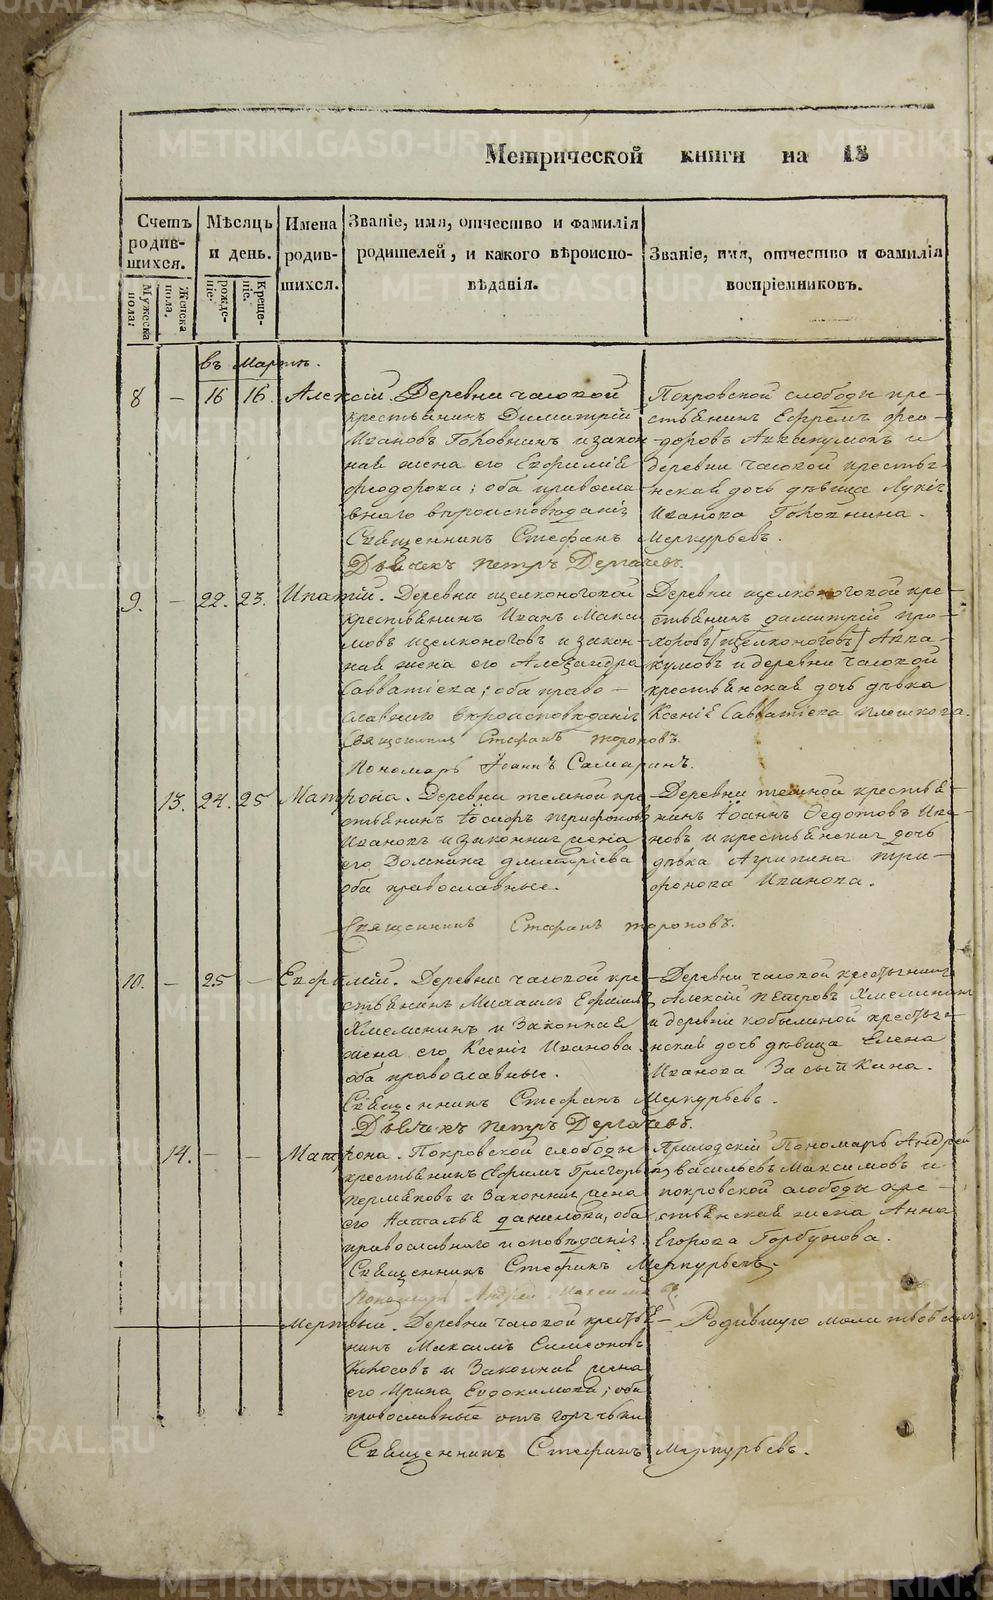 Метрической книги на 18
Счетъ родив-шихся.
Мужеска пола:
Женска пола.
Мѣсяцъ и день.
рожде-ніе.
Креще-ніе.
Имена родив-шихся.
Званіе, имя, отчество и фамилія
родишелей, и какого вѣроиспо-
вѣданія.
Званіе, имя, отчество и фамилія
воспріемниковъ.
въ Мартѣ.
8 — 16 16. Алексій. Деревни часовой
крестьянинъ Димитрій
Ивановъ Говорнинъ и закон
ная жена его Евфимія
Феодорова; оба правосла
внаго вѣроисповѣданія
Священникъ Стефанъ Меркурьевъ.
Дьячекъ Петръ Дергачевъ.
Покровской слободы кре-
стьянинъ Ефремъ Фео-
доровъ Аввакумовъ и
деревни часовой крестья-
нская дочь дѣвица
Иванова
9. — 22. 23. Ипатій. Деревни щелконоговой
крестьянинъ Иванъ Макси
мовъ щелконоговъ и закон-
ная жена его Александра
Савватіева; оба право-
славнаго вѣроисповѣданія
Священникъ Стефанъ Тороповъ.
Пономарь Іоаннъ Самаринъ.
Деревни щелконоговой кре-
стьянинъ димитрій про-
хоровъ [щелконоговъ] Авва-
кумовъ и деревни часовой
крестьянская дочь дѣвка
Ксенія Савватіева Плешкова.
13. 24. 25 Матрона. Деревни темной кре
стьянинъ Іосифъ Трифоновъ
Ивановъ и законная жена
его Домника Дмитріева
оба православные.
Священникъ Стефанъ Тороповъ.
Деревни темной крестья-
нинъ Іоаннъ Федотовъ Ива-
новъ и крестьянская дочь
дѣвка Агрипина Три-
фонова Иванова.
10. — 25 — Евфимій. Деревни часовой кре
стьянинъ Михаилъ Ефимовъ
Хмелининъ и Законная
жена его Ксенія Иванова
оба православные.
Священникъ Стефанъ Меркурьевъ.
Дьячекъ Петръ Дергачевъ.
Деревни часовой крестьянинъ
Алексій Петровъ Хмелининъ
и деревни кобылиной крестья-
нская дочь дѣвица Елена
Иванова Засыпкина.
14. — — Матрона. Покровской слободы
крестьянинъ Ефимъ Григорьевъ
Пермяковъ и Законная жена
его Наталья данилова, оба
православнаго исповѣданія.
Священникъ Стефанъ Меркурьевъ.
Пономарь Андрей Максимовъ.
Приходскій Пономарь Андрей
васильевъ Максимовъ и
покровской слободы кре-
стьянская жена Анна
Егорова Горбунова.
Мертвый. Деревни часовой крестья
нинъ Максимъ Симеоновъ
и Законная жена
его Ирина Евдокимова; оба
православные отъ горячки
Священникъ Стефанъ Меркурьевъ.